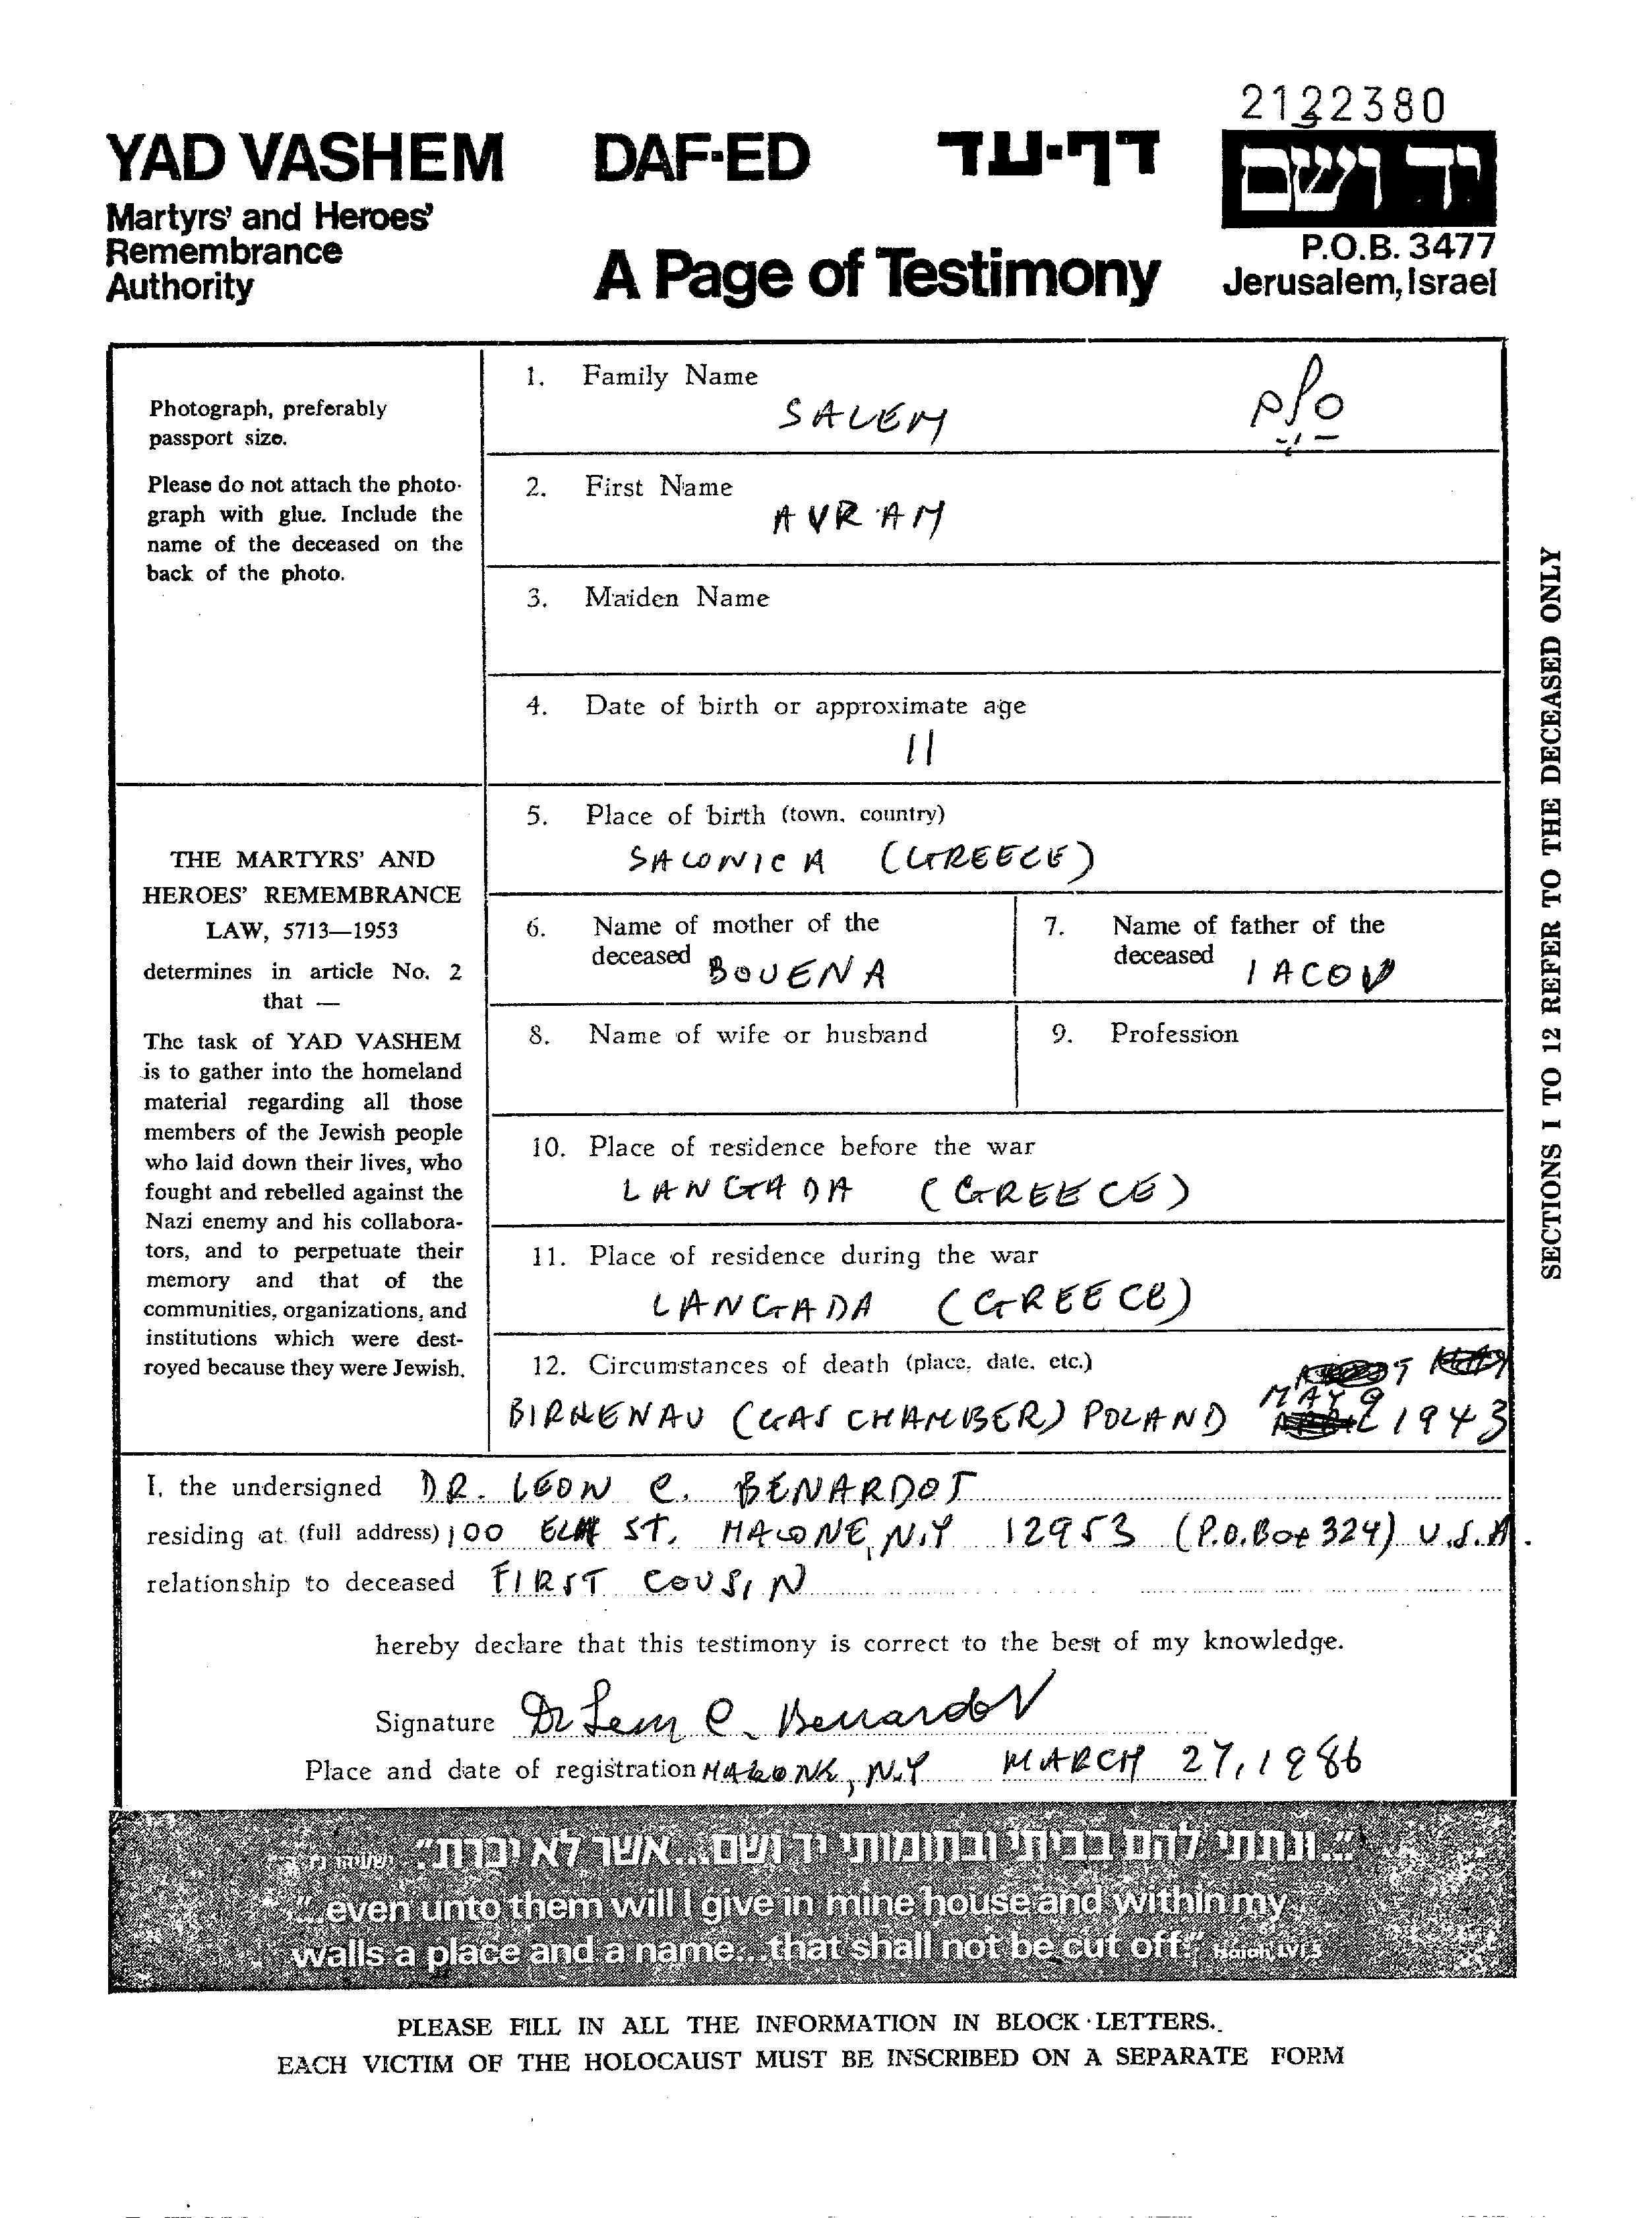 2122380
YAD VASHEM DAF-ED דף-עד יד ושם
Martyrs' and Heroes'
Remembrance
Authority
A Page of Testimony
P.O.B. 3477
Jerusalem, Israel
Photograph, preferably
passport size.
Please do not attach the photo-
graph with glue. Include the
name of the deceased on the
back of the photo.
THE MARTYRS' AND
HEROES' REMEMBRANCE
LAW, 5713—1953
determines in article No. 2
that —
The task of YAD VASHEM
is to gather into the homeland
material regarding all those
members of the Jewish people
who laid down their lives, who
fought and rebelled against the
Nazi enemy and his collabora-
tors, and to perpetuate their
memory and that of the
communities, organizations, and
institutions which were dest-
royed because they were Jewish.
1. Family Name
SALEM
2. First Name
AVRAM
3. Maiden Name
4. Date of birth or approximate age
11
5. Place of birth (town, country)
SALONICA (GREECE)
6. Name of mother of the
deceased BOUENA
7. Name of father of the
deceased IACOV
8. Name of wife or husband
9. Profession
10. Place of residence before the war
LANGADA (GREECE)
11. Place of residence during the war
LANGADA (GREECE)
12. Circumstances of death (place, date, etc.)
MAY 9
BIRKENAU (GAS CHAMBER) POLAND 1943
SECTIONS 1 TO 12 REFER TO THE DECEASED ONLY
I, the undersigned DR. LEON C. BENARDOT
residing at (full address) 100 ELM ST, MALONE, N.Y 12953 (P.O.Box 324) U.S.A.
relationship to deceased FIRST COUSIN
hereby declare that this testimony is correct to the best of my knowledge.
Signature Dr Leon C. Benardot
Place and date of registration MALONE, N.Y MARCH 27, 1986
"...ונתתי להם בביתי ובחומותי יד ושם...אשר לא יכרת."
"...even unto them will I give in mine house and within my
walls a place and a name...that shall not be cut off." Isaiah LVI,5
PLEASE FILL IN ALL THE INFORMATION IN BLOCK LETTERS.
EACH VICTIM OF THE HOLOCAUST MUST BE INSCRIBED ON A SEPARATE FORM